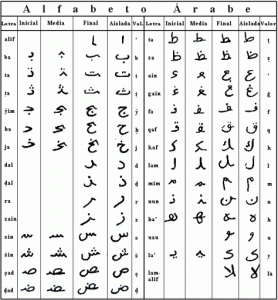 Alfabeto Árabe
Letra Inicial Media Final Aislada Val. Letra Inicial Media Final Aislada Valor
alif ـا ا ’ ta ط ـطـ ـط ط ṭ
ba بـ ـبـ ـب ب b za ظـ ـظـ ـظ ظ ẓ
ta تـ ـتـ ـت ت t ain عـ ـعـ ـع ع
ṯa ثـ ـثـ ـث ث ṯ gain غـ ـغـ ـغ غ
ŷim جـ ـجـ ـج ج ŷ fa فـ ـفـ ـف ف f
ḥa حـ ـحـ ـح ح ḥ qaf قـ ـقـ ـق ق q
ja خـ ـخـ ـخ خ j kof كـ ـكـ ـك ك k
dal ـد د d lam لـ ـلـ ـل ل l
ḏal ـذ ذ ḏ mim مـ ـمـ ـم م m
ra ـر ر r nun نـ ـنـ ـن ن n
zain ـز ز z ha' هـ ـهـ ـه ه h
sin سـ ـسـ ـس س s uau ـو و
šin شـ ـشـ ـش ش š ya' يـ ـيـ ـي ي y
ṣad صـ ـصـ ـص ص ṣ lam-alif ـلا لا la
ḍad ضـ ـضـ ـض ض ḍ